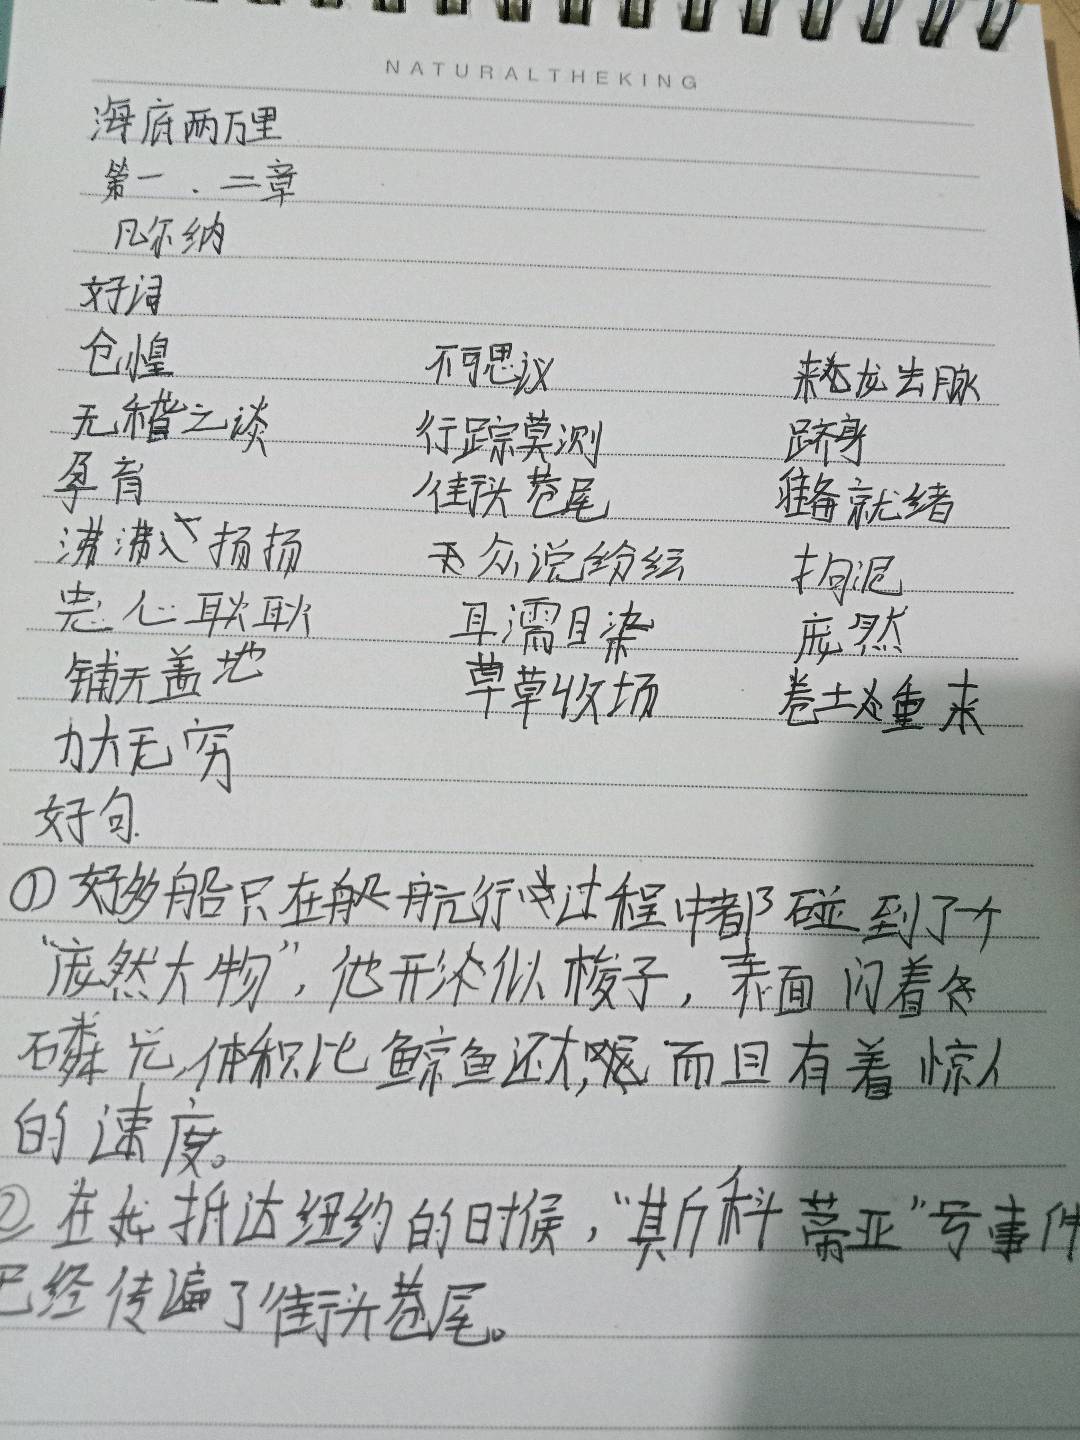 NATURALTHEKING
海底两万里
第一、二章
凡尔纳
好词
仓惶 不可思议 来龙去脉
无稽之谈 行踪莫测 跻身
孕育 街头巷尾 准备就绪
沸沸扬扬 众说纷纭 拘泥
忠心耿耿 耳濡目染 庞然
铺天盖地 草草收场 卷土重来
力大无穷
好句
①好多船只在船航行过程中都碰到了一个
“庞然大物”，他形状似梭子，表面闪着
磷光，体积比鲸鱼还大，而且有着惊人
的速度。
②在我抵达纽约的时候，“其斯科蒂亚”号事件
已经传遍了街头巷尾。